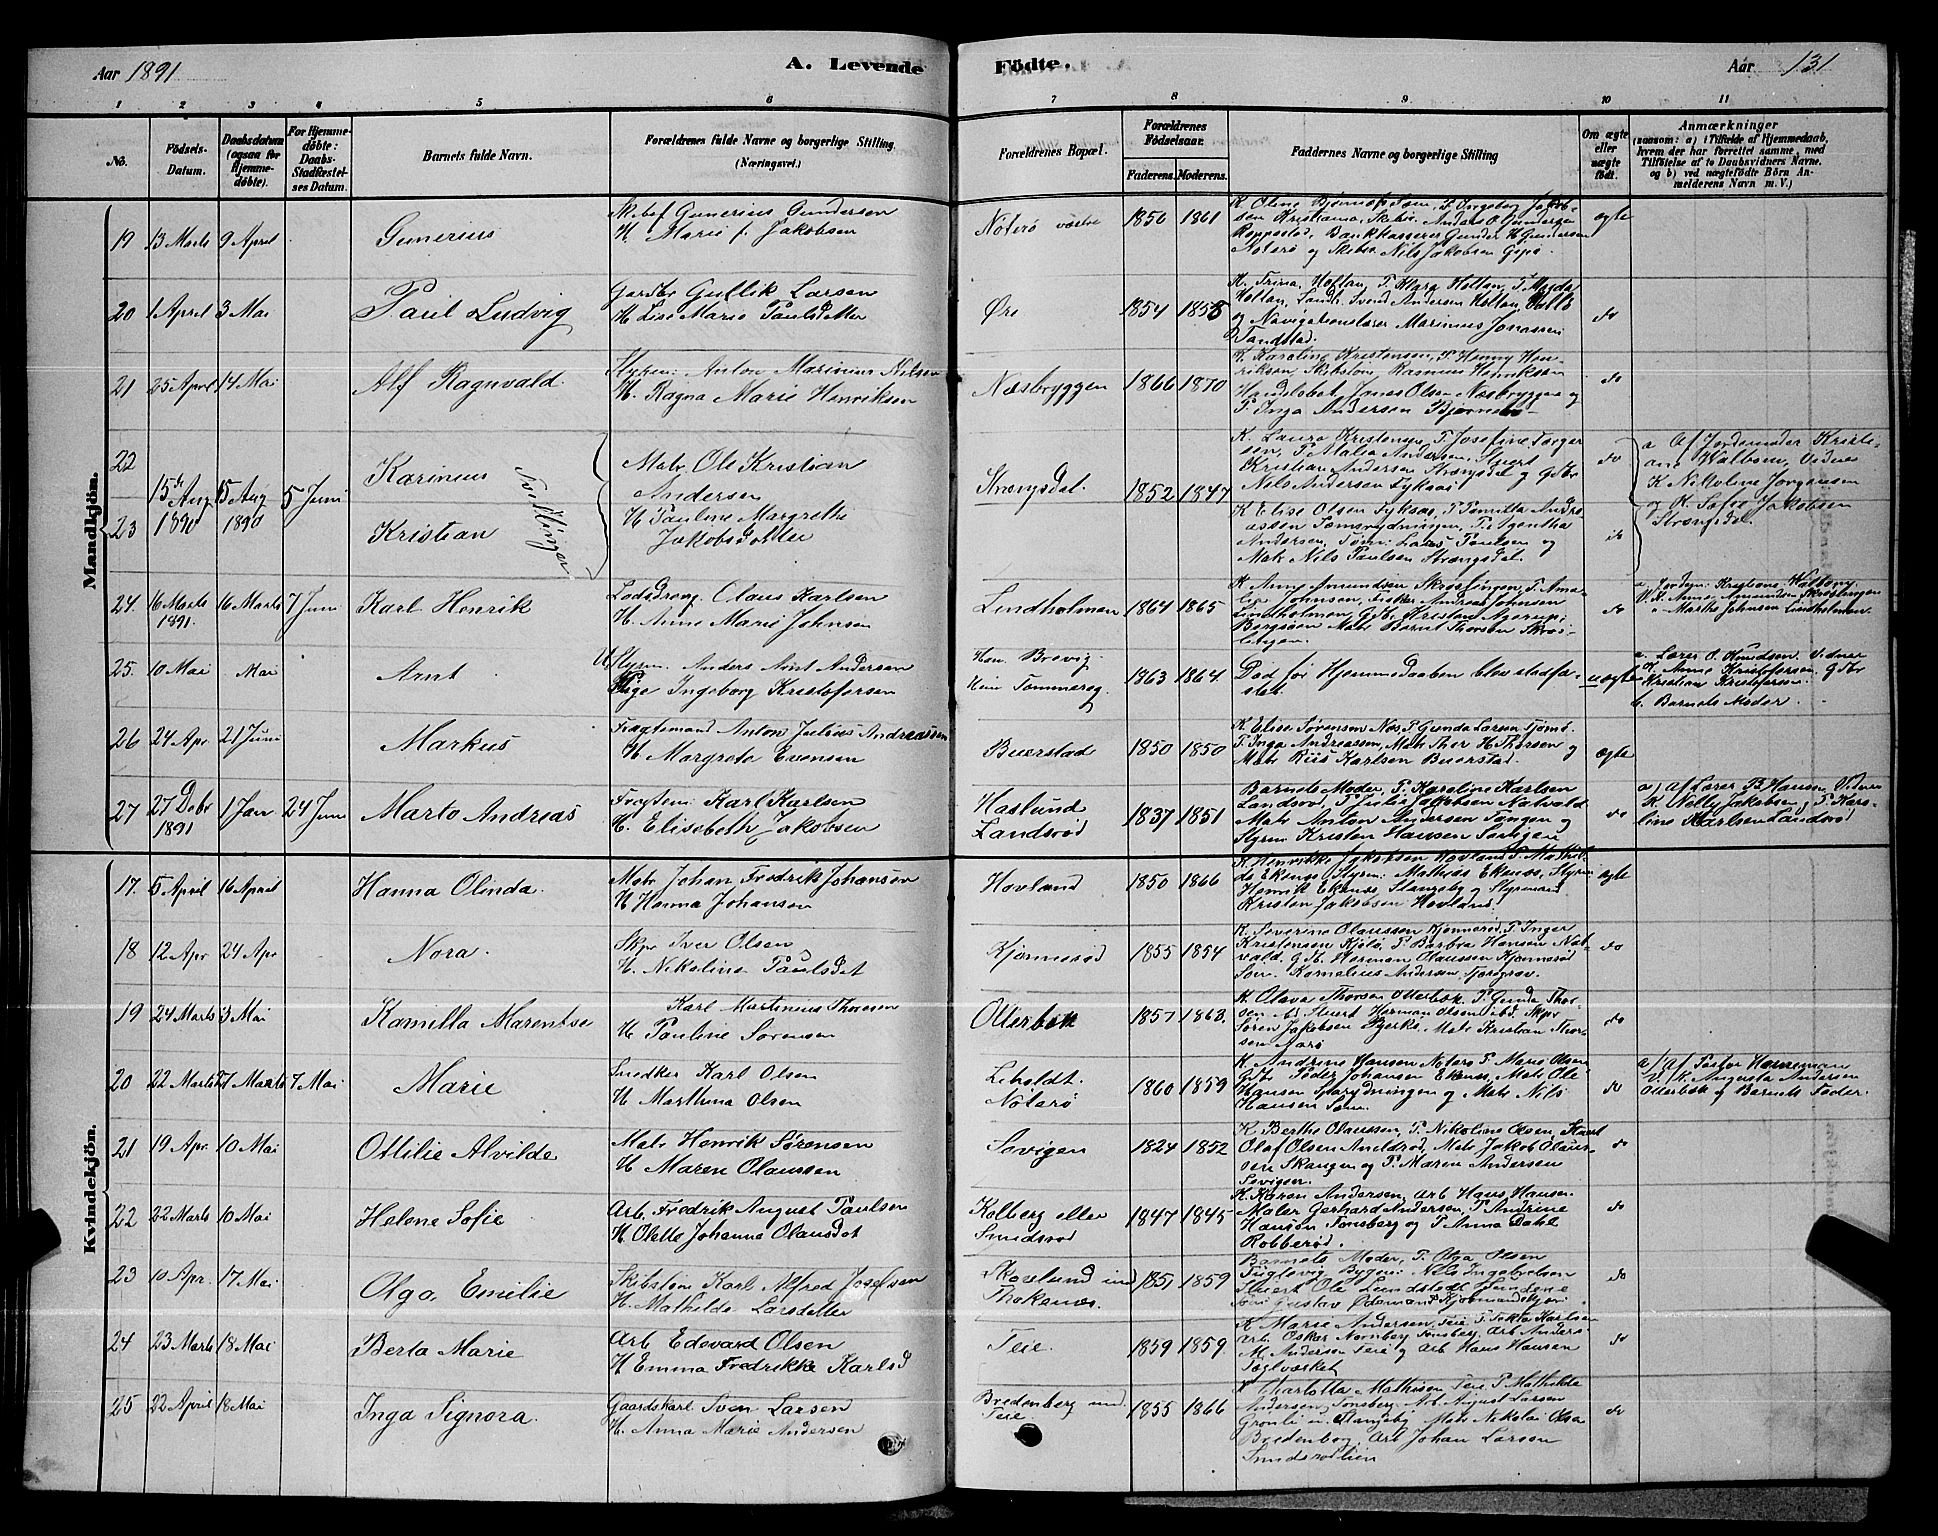 Aar 1891
A. Levende
Fødte.
Aar 131
1 2 3 4 5 6
7 8 9 10 11
No.
Fødsels-Datum.
Daabsdatum (ogsaa for Hjemme-døbte).
For Hjemme-døbte: Daabs-Stadfæstel-ses Datum.
Barnets fulde Navn.
Forældrenes fulde Navne og borgerlige Stilling (Næringsvei.)
Forældrenes Bopæl.
Forældrenes Fødselsaar.
Faderens. Moderens.
Faddernes Navne og borgerlige Stilling
Om ægte eller uægte født.
Anmærkninger
(saasom: a) i Tilfælde af Hjemmedaab, hvem der har forrettet samme, med Tilføielse af to Daabsvidners Navne. og b) ved uægtefødte Børn An-melderens Navn m. V.)
Mandkjön.
19 13 Marts 9 April
Gunerius
Skbef Gunerius Gundersen
H. Marie f. Jakobsen
Noterø vestre
1856 1861
Noterø og Skbr. Nils Jakobsen
ægte
20 1 April 3 Mai
Paul Ludvig
Gardbr Gullik Larsen
H Lise Marie Paulsdatter
Øre
1854 1855
K. Trina Holtan, P. Klara Holtan, P. Magda
Holtan, Svend Andersen Holtan
og Navigationslærer Marinius Jonassen
do
21 25 April 14 Mai
Alf Ragnvald
Styrm. Anton Marinius Nilsen
H. Ragna Marie Henriksen
Næsbryggen
1866 1870
K. Karoline Kristensen, P. Henny Hen-
riksen, Skibstøm. Rasmus Henriksen
Jonas Olsen Næsbryggen og
P. Inga Andersen
do
22
15de Aug 1890 15 Aug 1890 5 Juni
23
Karinius
Kristian
Tvillinger
Matr. Ole Kristian
Andersen
H Pauline Margrethe
Jakobsdatter
Strængsdal
1852 1847
K. Laura Kristensen, P. Josefine Torger
sen, P. Malia Andersen, Stuert
Kristian Andersen Strængsdal og Gdbr
Nils Andersen
K Elise Olsen
Andersen, Tømr. Lars Paulsen og
Matr Nils Paulsen Strængsdal.
do
do
a Af Jordemoder Kristi-
ane Walbom, Vidner
K Nikoline Jørgensen
og K. Sofie Jakobsen
Strængsdal
24. 16 Marts 1891. 16 Marts 7 Juni
Karl Henrik
Lodsdreng Olaus Karlsen
H. Anne Marie Johnsen
Lindholmen
1864 1865
K Anne Amundsen Skrøslingen, P. Ama-
lie Johnsen, Fisker Andreas Johnsen
Lindholmen, Gdb. Kristen Agerup,
Bergsøen Matr Bernt Thorsen Skrøs-
lingen.
do
a. Jordem. Kristiane Walbom.
V. K. Anne Amundsen Skrøslingen
" Marthe Johnsen Lindholmen.
25. 10 Mai Mai
Arnt
U Styrm. Anders Arnt Andersen
Pige Ingeborg Kristofersen
Han Brevig
Hun Tømmersg
1863 1864.
Død før Hjemmedaaben blev stadfæ-
stet.
uægte
a. Lærer O. Knudsen. Vidner
K. Anne Kristofersen. Gdbr
Kristian Kristofersen.
b. Barnets Moder.
26 24 Apr 21 Juni
Markus
Fragtemand Anton Julius Andreassen
H. Margrete Evensen
Buerstad
1850 1850
K. Elise Sørensen Næs, P. Gunda Larsen Tjømø.
P. Inga Andreassen, Matr Thor H. Thorsen og
Matr Riis Karlsen Buerstad.
ægte
27 27 Debr 1891 1 Jan 24 Juni
Marto Andreas
Fragtem. Karl Karlsen
H. Elisebeth Jakobsen
Haslund
Landsrød
1837 1851
Barnets Moder, P. Karoline Karlsen
Landsrød, P. Julie Jakobsen Natvald
Matr Anton Andersen Tangen og
Styrm Kristen Hansen
do
a) Af Lærer B. Hansen, Vidner
K. Nelly Jakobsen, P. Karo-
line Karlsen Landsrød
Kvindekjön.
17. 5 April 16 April
Hanna Olinda.
Matr Johan Fredrik Johansen
H Hanna Johansen
Hovland
1850 1866
K. Henrikke Jakobsen Hovland P. Mathil-
de Ekenes, Styrm. Mathias Ekenes, Styrm
Henrik Ekenes, Slangsby og Styrmand
Kristen Jakobsen Hovland
ægte
18 12 Apr 24 Apr
Nora.
Skpr Iver Olsen
H. Nikoline Paulsdat
Kjønnerød
1855 1854
K. Severine Olaussen Kjønnerød P. Inger
Kristensen Kjilø, P. Barbra Hansen Nat-
vald. Gdb. Herman Olaussen Kjønnerød
Søm. Kornelius Andersen
do
19 24 Marts 3 Mai
Kamilla Marentse
Karl Martinius Thoresen
H Pauline Sørensen
Otterbæk
1857 1863.
K. Olava Thorsen Otterbæk, P. Gunda Thor-
sen ibd. Stuert Herman Olsen ibd. Skpr
Søren Jakobsen Bjerke, Matr Kristian Thor-
sen Aarø
do
20 22 Marts 27 Marts 7 Mai
Marie
Snedker Karl Olsen
H Marthina Olsen
Leholdt.
Nøterø
1860 1859
K. Andrine Hansen Noterø P. Marie Olsen
Gdbr Peder Johansen Ekenes, Matr Ole
Hansen Sparydningen og Matr Nils
Hansen Sem.
do
a/ Af Pastor Hanneman
V. K. Augusta Andersen
Otterbæk og Barnets Fader.
21 19 Apr. 10 Mai
Ottilie Alvilde
Matr Henrik Sørensen
H Maren Olaussen
Søvigen
1824 1852
K. Berthe Olaussen, P. Nikoline Olsen,
Olaf Olsen Aneldrød, Matr Jakob Olaus-
sen Skangen og P. Maren Andersen
Søvigen.
do
22 22 Marts 10 Mai
Helene Sofie
Arb. Fredrik August Paulsen
H. Olette Johanne Olausdat
Kolberg eller
Smidsrød
1847 1845
K. Karen Andersen, Arb Hans Hansen.
Maler Gerhard Andersen, P. Andrine
Hansen Tønsberg og P. Anna Dahl
Robberød.
do
23 10 Apr. 17 Mai
Olga Emilie
Skibstøm Karl Alfred Josefsen
H. Mathilde Larsdatter
Skoelund und
Thokenæs.
1851 1859
Barnets Moder, P. Olga Olsen
Fuglevig, Bygm. Nils Ingebretsen
Stuert Ole Lundstedt
Gustav Ødemand
do
24 23 Marts 18 Mai
Berta Marie
Arb Edevard Olsen
H Emma Fredrikke Karlsd
Teie.
1859 1859
K Marie Andersen, Teie, P. Tekla Karlsen
Arb. Oskar Nornberg Tønsberg, Arb Anders
M. Andersen Teie og Arb Hans Hansen
Teglværket
do
25 22 April 18 Mai
Inga Signora.
Gaardskarl Sven Larsen
H. Anna Marie Andersen
Bredenberg und
Teie
1855 1866
K Charlotta Mathisen, Teie P. Mathilde
Andersen Tønsberg, Arb. August Larsen
Grønli u. Slangsby Matr Nikolai Olsen
Bredenberg, Arb Johan Larsen
Smidsrødlien
do